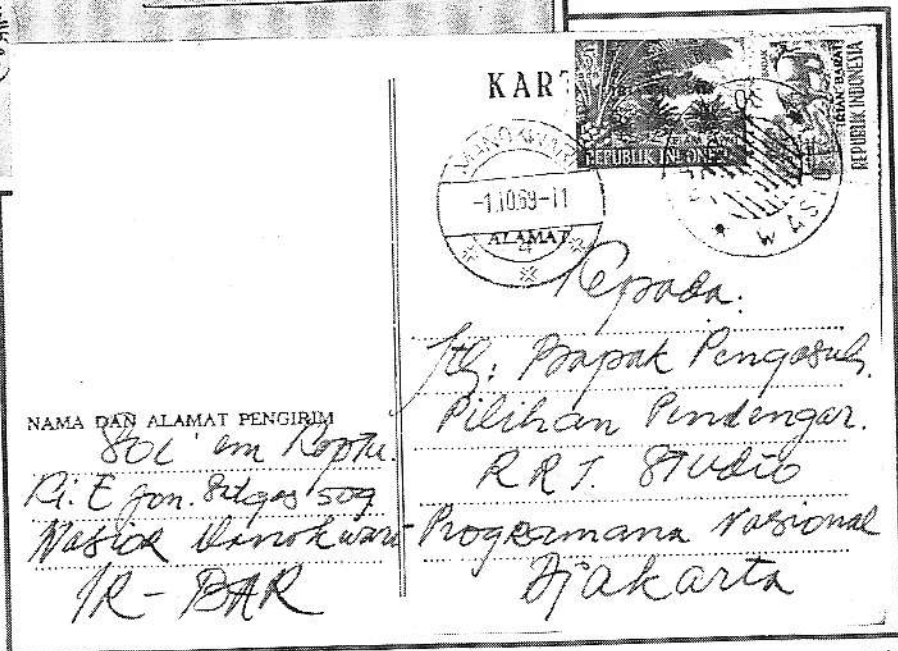 KART
REPUBLIK INDONESIA
IRIAN BARAT
REPUBLIK INDONESIA
MANOKWARI
-1.10.69-11
4
WASIOR
ALAMAT
Kepada:
Jth: Bapak Pengasuh.
Pilihan Pendengar.
RRI. Studio
Programana Nasional
Djakarta
NAMA DAN ALAMAT PENGIRIM
Sol'em Koptu.
Ki: E Jon. Satgas 509
Wasior Manokwari
IR-BAR